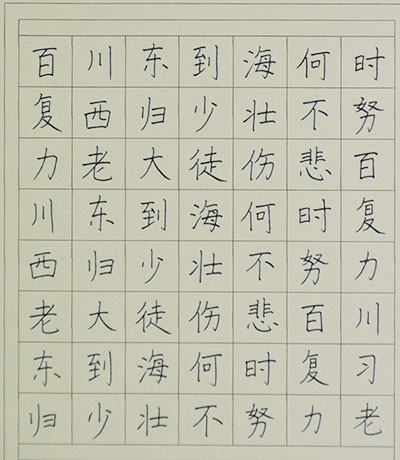 百川东到海何时
复西归少壮不努
力老大徒伤悲百
川东到海何时复
西归少壮不努力
老大徒伤悲百川
东到海何时复习
归少壮不努力老